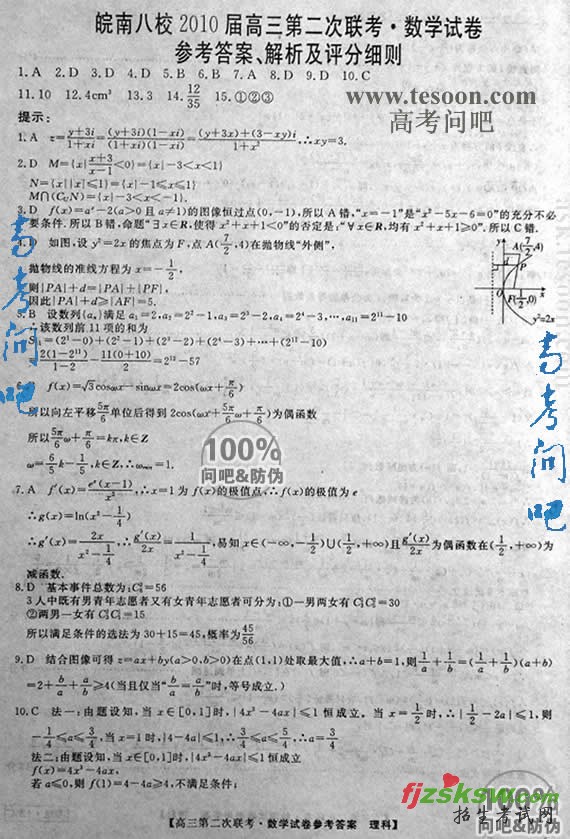 皖南八校 2010 届高三第二次联考·数学试卷
参考答案、解析及评分细则
1. A 2. D 3. D 4. D 5. B 6. B 7. A 8. D 9. D 10. C
11. 10 12. 4cm³ 13. 3 14. 12/35 15. ①②③
www.tesoon.com
高考问吧
提示:
1. A z=(y+3i)/(1+xi)=(y+3i)(1-xi)/(1+xi)(1-xi)=((y+3x)+(3-xy)i)/(1+x²),∴xy=3.
2. D M={x|(x+3)/(x-1)<0}={x|-3<x<1}
N={x||x|≤1}={x|-1≤x≤1}
M∩(C_U N)={x|-3<x<-1}.
3. D f(x)=aˣ-2(a>0 且 a≠1)的图像恒过点(0,-1),所以 A 错,“x=-1”是“x²-5x-6=0”的充分不必
要条件.所以 B 错,命题“∃x∈R,使得 x²+x+1<0”的否定是:“∀x∈R,均有 x²+x+1≥0”.所以 C 错.
4. D 如图,设 y²=2x 的焦点为 F,点 A(7/2,4)在抛物线“外侧”,
抛物线的准线方程为 x=-1/2,
则|PA|+d=|PA|+|PF|,
因此|PA|+d≥|AF|=5.
y A(7/2,4)
P
O F(1/2,0) x
y²=2x
5. B 设数列{aₙ}满足 a₁=2,a₂=2²-1,a₃=2³-2,a₄=2⁴-3,…,a₁₁=2¹¹-10
∴该数列前 11 项的和为
S₁₁=(2¹-0)+(2²-1)+(2³-2)+(2⁴-3)+…+(2¹¹-10)
=2(1-2¹¹)/(1-2)-11(0+10)/2=2¹²-57
f(x)=√3cosωx-sinωx=2cos(ωx+π/6)
所以向左平移5π/6单位后得到 2cos(ωx+5π/6ω+π/6)为偶函数
所以5π/6ω+π/6=kπ,k∈Z
ω=6/5k-1/5,k∈Z,∴ωmin=1.
7. A f′(x)=eˣ(x-1)/x²,∴x=1 为 f(x)的极值点,∴f(x)的极值为 e
∴g(x)=ln(x²-1/4)
∴g′(x)=2x/(x²-1/4),∴g′(x)/2x=1/(x²-1/4),易知 x∈(-∞,-1/2)∪(1/2,+∞)且g′(x)/2x为偶函数在(1/2,+∞)为
减函数.
8. D 基本事件总数为:C₈³=56
3 人中既有男青年志愿者又有女青年志愿者可分为:①一男两女有 C₅¹C₃²=30
②两男一女有 C₃²C₅¹=15
所以满足条件的选法为 30+15=45,概率为45/56
9. D 结合图像可得 z=ax+by(a>0,b>0)在点(1,1)处取最大值,∴a+b=1,则1/a+1/b=(1/a+1/b)(a+b)
=2+b/a+a/b≥4(当且仅当“b/a=a/b”时,等号成立.)
10. C 法一:由题设知,当 x∈[0,1]时,|4x³-4ax|≤1 恒成立,当 x=1/2时,∴|1/2-2a|≤1,则
-1/4≤a≤3/4,当 x=1 时,|4-4a|≤1,∴3/4≤a≤5/4,∴a=3/4
法二:由题设知,当 x∈[0,1]时,|4x³-4ax|≤1 恒成立
f(x)=4x³-4ax,
若 a≤0,则 f(1)=4-4a≥4,不满足条件;
【高三第二次联考·数学试卷参考答案 理科】
高考问吧
高考问吧
100%
问吧&防伪
100%
fjzsksw.com
招生考试网